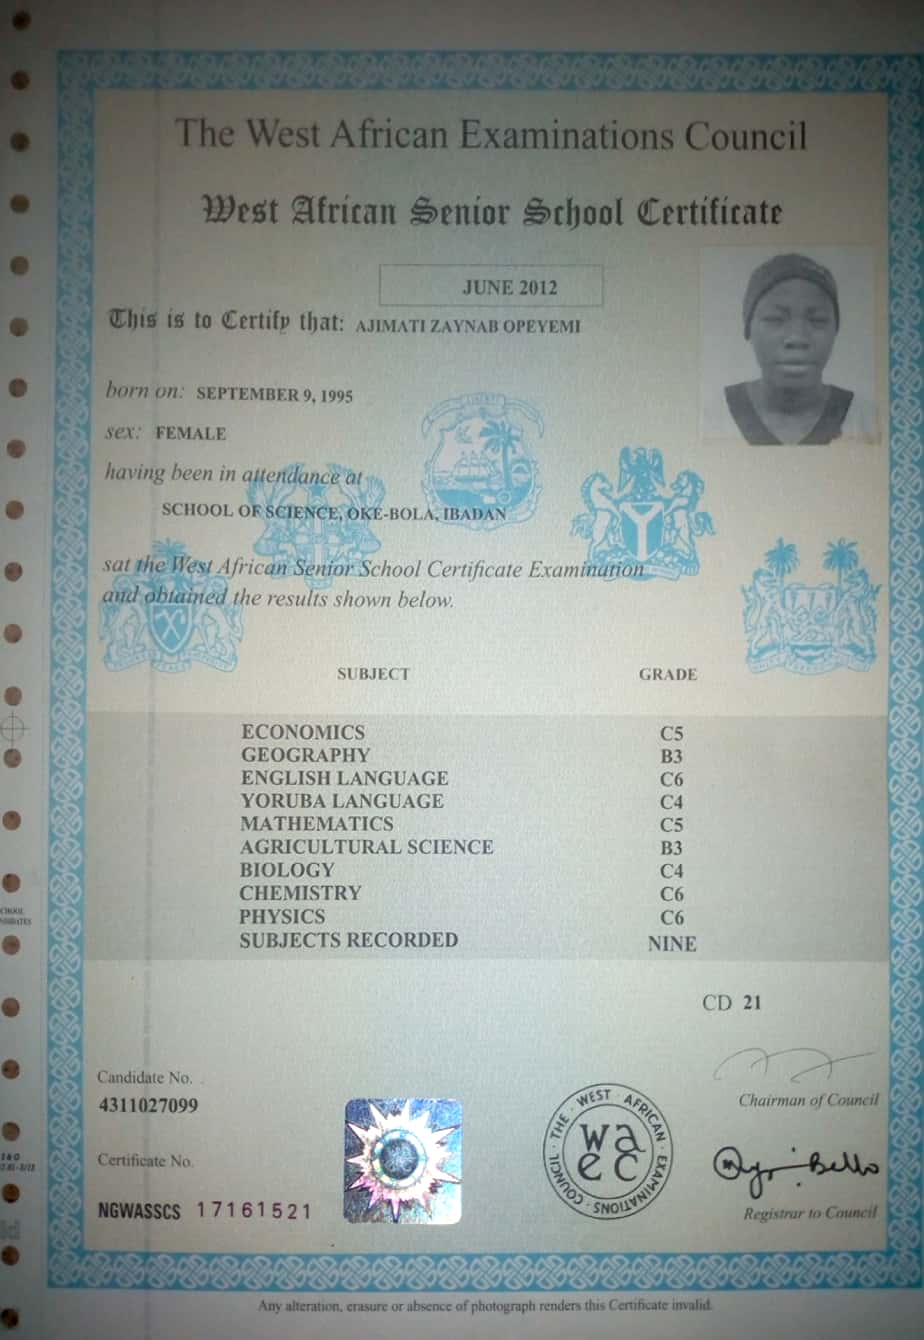 The West African Examinations Council
West African Senior School Certificate
JUNE 2012
This is to Certify that: AJIMATI ZAYNAB OPEYEMI
born on: SEPTEMBER 9, 1995
sex: FEMALE
having been in attendance at
SCHOOL OF SCIENCE, OKE-BOLA, IBADAN
sat the West African Senior School Certificate Examination
and obtained the results shown below.
SUBJECT GRADE
ECONOMICS C5
GEOGRAPHY B3
ENGLISH LANGUAGE C6
YORUBA LANGUAGE C4
MATHEMATICS C5
AGRICULTURAL SCIENCE B3
BIOLOGY C4
CHEMISTRY C6
PHYSICS C6
SUBJECTS RECORDED NINE
CD 21
Candidate No.
4311027099
Chairman of Council
Certificate No.
NGWASSCS 17161521
THE · WEST AFRICAN · EXAMINATIONS · COUNCIL
waec
Bello
Registrar to Council
Any alteration, erasure or absence of photograph renders this Certificate invalid.